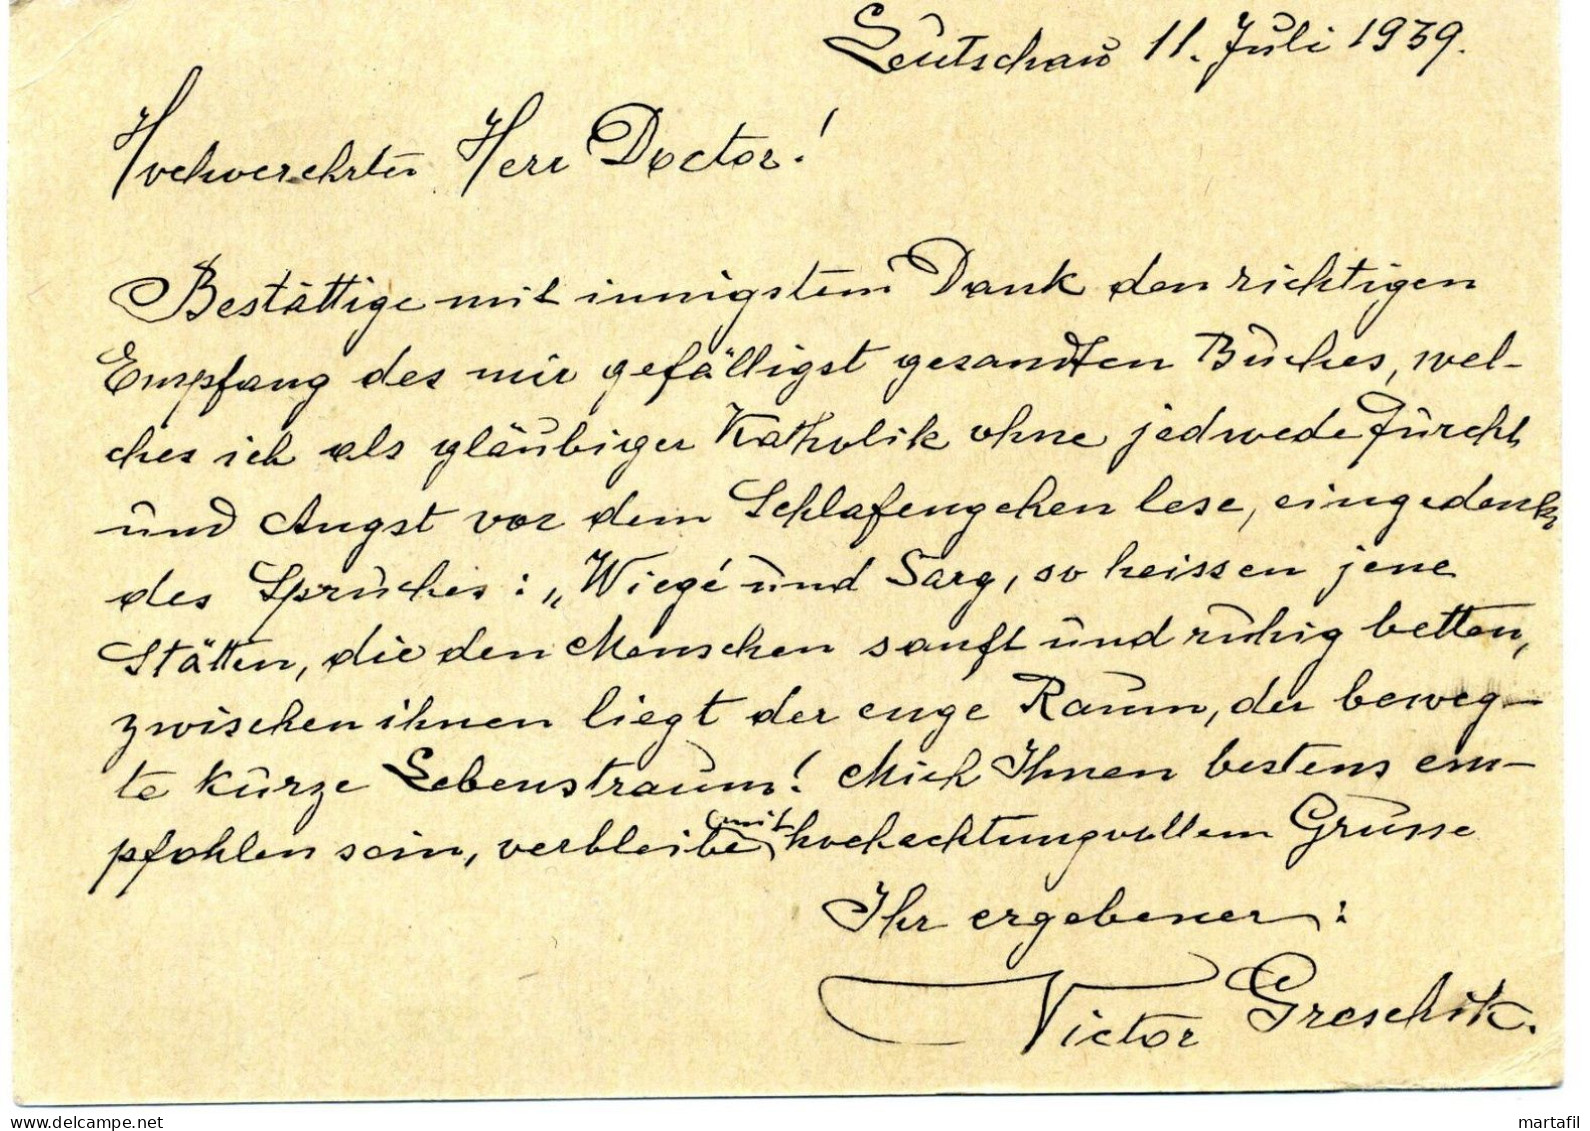 Leutschau 11. Juli 1939.
Hochverehrter Herr Doctor!
Bestättige mit innigstem Dank den richtigen
Empfang des mir gefälligst gesandten Buches, wel-
ches ich als gläubiger Katholik ohne jedwede Furcht
und Angst vor dem Schlafengehen lese, eingedenk
des Spruches: „Wiege und Sarg, so heissen jene
Stätten, die den Menschen sanft und ruhig betten,
zwischen ihnen liegt der enge Raum, der beweg-
te kurze Lebenstraum! Mich Ihnen bestens em-
pfohlen sein, verbleibe mit hochachtungvollem Grusse
Ihr ergebener:
Victor Greschik.
www.delcampe.net
martafil